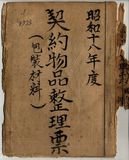 昭和十八年度
契約物品整理票
(包装材料)